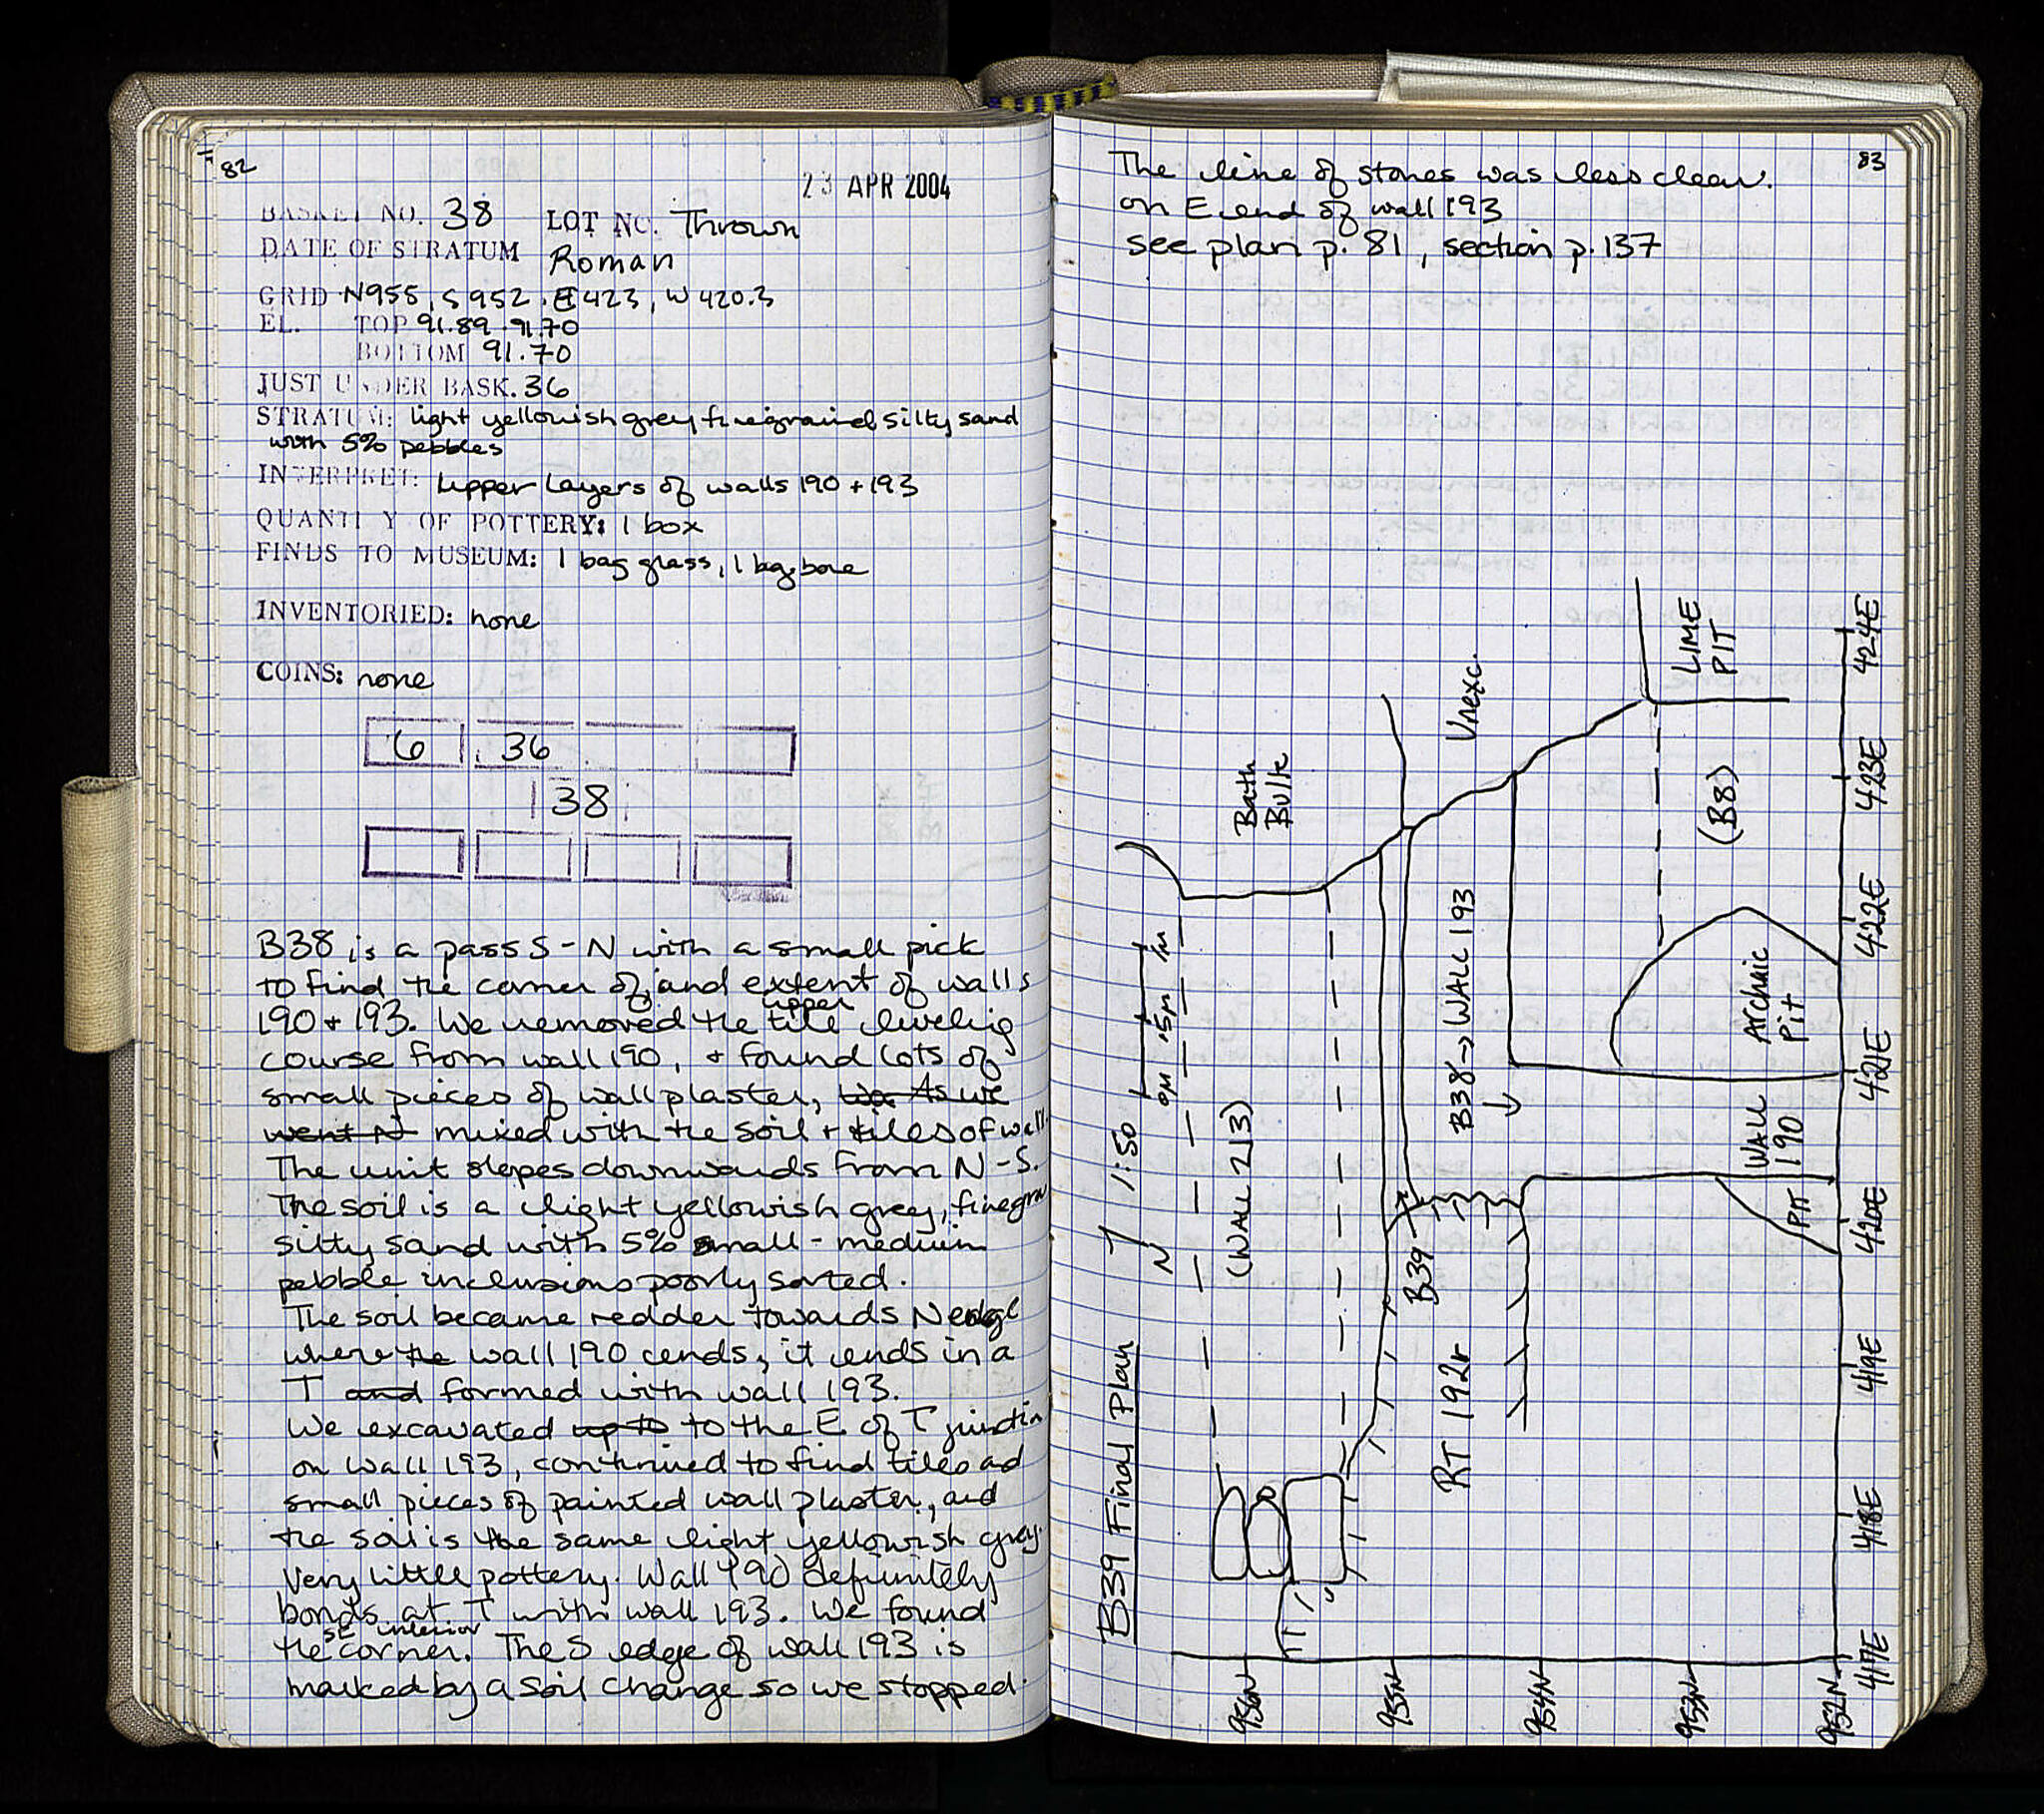 82
23 APR 2004
BASKET NO. 38 LOT NO. Thrown
DATE OF STRATUM Roman
GRID N955, S952, E423, W420.3
EL. TOP 91.89 - 91.70
BOTTOM 91.70
JUST UNDER BASK. 36
STRATUM: light yellowish grey finegrained silty sand
with 5% pebbles
INTERPRET: upper layers of walls 190 + 193
QUANTITY OF POTTERY: 1 box
FINDS TO MUSEUM: 1 bag glass, 1 bag bone
INVENTORIED: none
COINS: none
6 36
38
B38 is a pass S-N with a small pick
to find the corner of, and extent of walls
190 + 193. We removed the upper tile leveling
course from wall 190, + found lots of
small pieces of wall plaster, As we
went N mixed with the soil + tiles of wall.
The unit slopes downwards from N-S.
The soil is a light yellowish grey, finegrn
silty sand with 5% small - medium
pebble inclusions poorly sorted.
The soil became redder towards N edge
where the wall 190 ends, it ends in a
T and formed with wall 193.
We excavated up to to the E of T junctin
on wall 193, continued to find tiles ad
small pieces of painted wall plaster, and
the soil is the same light yellowish grey.
Very little pottery. Wall 190 definitely
bonds at T with wall 193. We found
the SE interior corner. The S edge of wall 193 is
marked by a soil change so we stopped.
83
The line of stones was less clear.
on E end of wall 193
see plan p. 81, section p. 137
B39 Final Plan
N 1:50
0M .5M 1M
(WALL 213)
Bath
Bulk
Unexc.
LIME
PIT
(B8)
B38 → WALL 193
Archaic
Pit
WALL
190
PIT
B39
RT 192r
956N
955N
954N
953N
952N
417E
418E
419E
420E
421E
422E
423E
424E